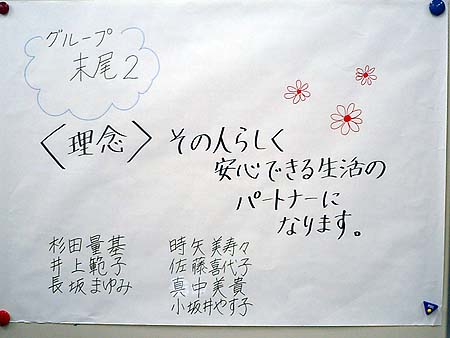 グループ
末尾2
〈理念〉その人らしく
安心できる生活の
パートナーに
なります。
杉田量基
井上範子
長坂まゆみ
時矢美寿々
佐藤喜代子
真中美貴
小坂井やす子